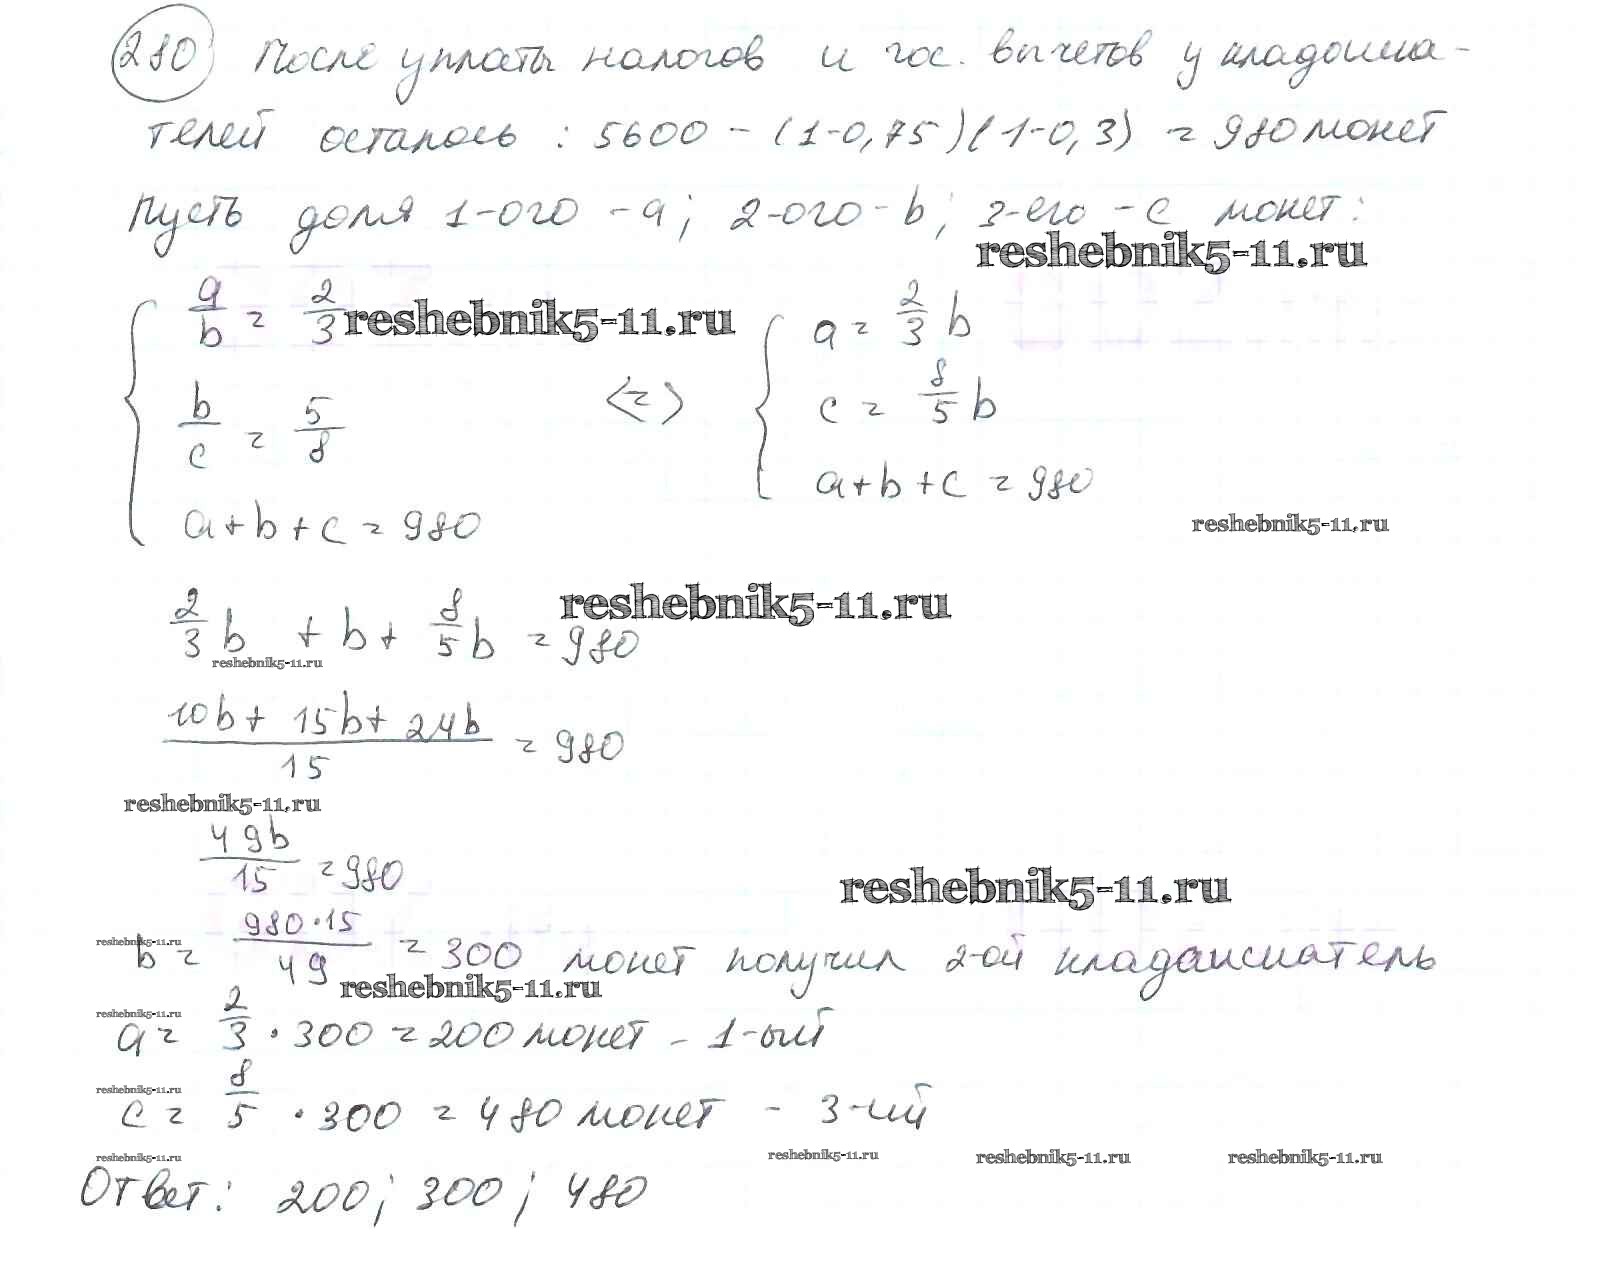 280 После уплаты налогов и гос. вычетов у кладоиска-
телей осталось : 5600 - (1-0,75)(1-0,3) = 980 монет
Пусть доля 1-ого - a; 2-ого - b; 3-его - c монет:
reshebnik5-11.ru
a/b = 2/3 reshebnik5-11.ru a = 2/3 b
b/c = 5/8 <=> c = 8/5 b
a+b+c = 980 a+b+c = 980
reshebnik5-11.ru
reshebnik5-11.ru
2/3 b + b + 8/5 b = 980
reshebnik5-11.ru
10b + 15b + 24b / 15 = 980
reshebnik5-11.ru
49b / 15 = 980
reshebnik5-11.ru
reshebnik5-11.ru
b = 980·15 / 49 = 300 монет получил 2-ой кладоискатель
reshebnik5-11.ru
reshebnik5-11.ru
a = 2/3 · 300 = 200 монет - 1-ый
reshebnik5-11.ru
c = 8/5 · 300 = 480 монет - 3-ий
reshebnik5-11.ru reshebnik5-11.ru reshebnik5-11.ru reshebnik5-11.ru
Ответ: 200; 300; 480